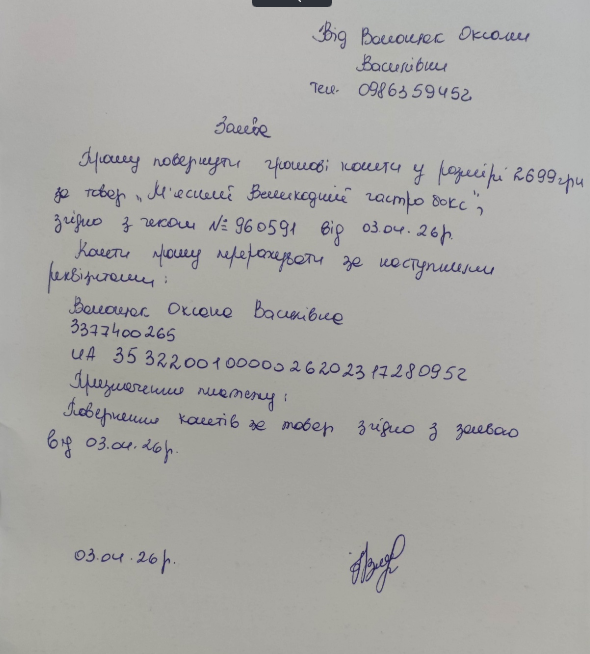 Від Волощек Оксани
Василівни
тел. 0986359452
Заява
Прошу повернути грошові кошти у розмірі 2699грн
за товар „М'ясний Великодній гастро бокс",
згідно з чеком № 960591 від 03.04.26р.
Кошти прошу перерахувати за наступними
реквізитами:
Оксана Василівна
3377400265
UA 35 322001 00000 26202317280952
Призначення платежу:
Повернення коштів за товар згідно з заявою
від 03.04.26р.
03.04.26р.